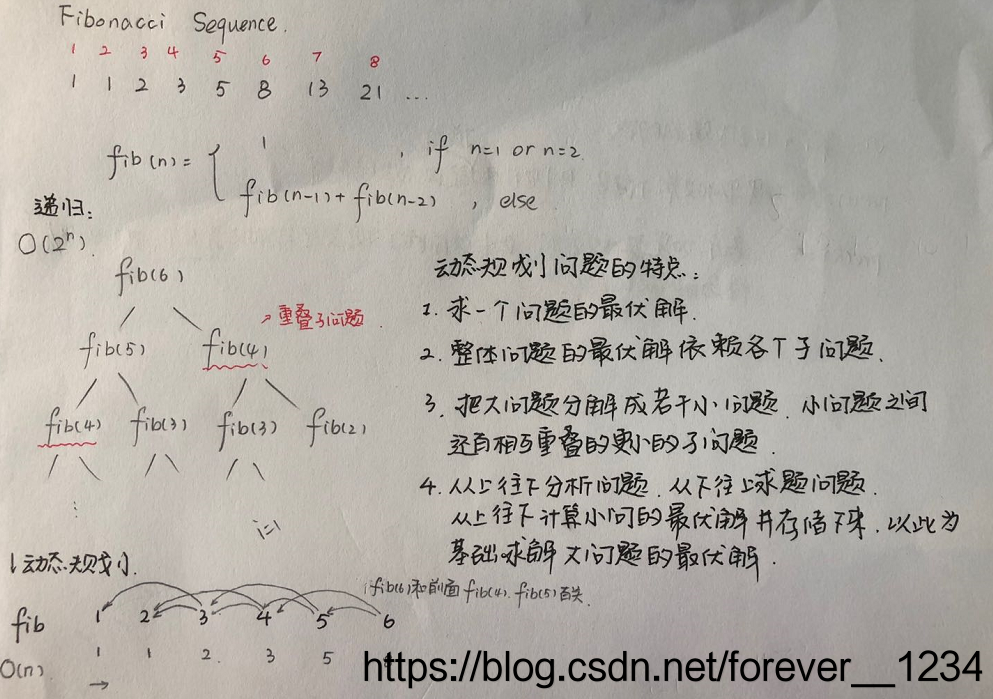 Fibonacci Sequence.
1 2 3 4 5 6 7 8
1 1 2 3 5 8 13 21 ...
fib(n) = { 1 , if n=1 or n=2
fib(n-1)+fib(n-2) , else
递归:
O(2ⁿ)
fib(6)
fib(5) fib(4) → 重叠子问题
fib(4) fib(3) fib(3) fib(2)
⋮
i=1
动态规划问题的特点:
1. 求一个问题的最优解.
2. 整体问题的最优解依赖各个子问题.
3. 把大问题分解成若干小问题. 小问题之间
还有相互重叠的更小的子问题
4. 从上往下分析问题. 从下往上求题问题.
从上往下计算小问的最优解并存储下来. 以此为
基础求解大问题的最优解.
动态规划.
fib(6)和前面fib(4).fib(5)有关.
fib 1 2 3 4 5 6
O(n) 1 1 2 3 5
→
https://blog.csdn.net/forever__1234